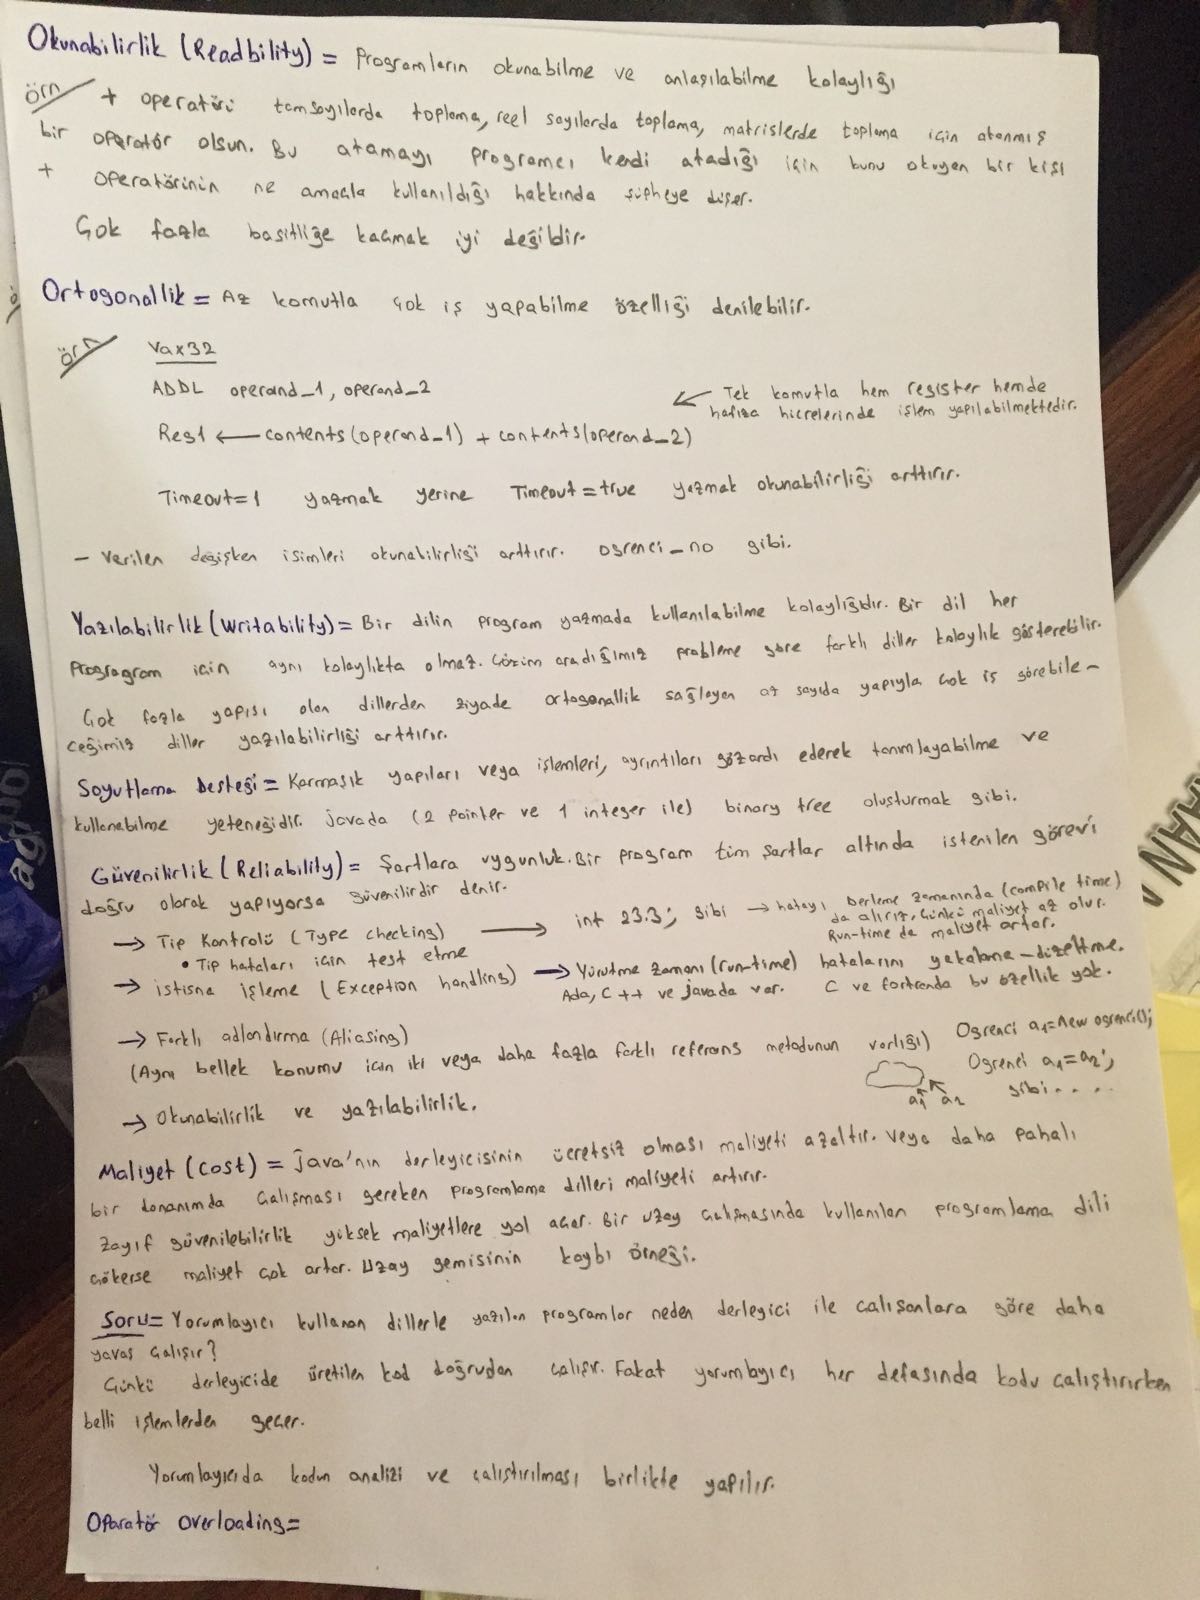 Okunabilirlik (Readbility) = Programların okunabilme ve anlaşılabilme kolaylığı
örn
+ operatörü tamsayılarda toplama, reel sayılarda toplama, matrislerde toplama için atanmış
bir operatör olsun. Bu atamayı programcı kendi atadığı için bunu okuyan bir kişi
+ operatörünün ne amaçla kullanıldığı hakkında şüpheye düşer.
Çok fazla basitliğe kaçmak iyi değildir.
Ortogonallik = Az komutla çok iş yapabilme özelliği denilebilir.
örn
Vax32
ADDL operand_1, operand_2
← Tek komutla hem register hemde
hafıza hücrelerinde işlem yapılabilmektedir.
Reg1 ← contents(operand_1) + contents(operand_2)
Timeout=1 yazmak yerine Timeout=true yazmak okunabilirliği arttırır.
- Verilen değişken isimleri okunabilirliği arttırır. ogrenci_no gibi.
Yazılabilirlik (Writability) = Bir dilin program yazmada kullanılabilme kolaylığıdır. Bir dil her
progragram için aynı kolaylıkta olmaz. Çözüm aradığımız probleme göre farklı diller kolaylık gösterebilir.
Çok fazla yapısı olan dillerden ziyade ortogonallik sağlayan az sayıda yapıyla çok iş görebile-
ceğimiz diller yazılabilirliği arttırır.
Soyutlama Desteği = Karmaşık yapıları veya işlemleri, ayrıntıları gözardı ederek tanımlayabilme ve
kullanabilme yeteneğidir. javada (2 pointer ve 1 integer ile) binary tree oluşturmak gibi.
Güvenilirlik (Reliability) = Şartlara uygunluk. Bir program tüm şartlar altında istenilen görevi
doğru olarak yapıyorsa güvenilirdir denir.
→ Tip Kontrolü (Type checking) → int 23.3; gibi → hatayı Derleme zamanında (compile time)
da alırız, çünkü maliyet az olur.
Run-time da maliyet artar.
• Tip hataları için test etme
→ istisna işleme (Exception handling) → Yürütme zamanı (run-time) hatalarını yakalama-düzeltme.
Ada, C++ ve javada var. C ve fortranda bu özellik yok.
→ Farklı adlandırma (Aliasing)
(Aynı bellek konumu için iki veya daha fazla farklı referans metodunun varlığı)
Ogrenci a1=new ogrenci();
Ogrenci a1=a2;
gibi....
a1 a2
→ Okunabilirlik ve yazılabilirlik.
Maliyet (cost) = Java'nın derleyicisinin ücretsiz olması maliyeti azaltır. Veya daha pahalı
bir donanımda çalışması gereken programlama dilleri maliyeti artırır.
Zayıf güvenilebilirlik yüksek maliyetlere yol açar. Bir uzay çalışmasında kullanılan programlama dili
çökerse maliyet çok artar. Uzay gemisinin kaybı örneği.
Soru= Yorumlayıcı kullanan dillerle yazılan programlar neden derleyici ile çalışanlara göre daha
yavaş çalışır?
Çünkü derleyicide üretilen kod doğrudan çalışır. Fakat yorumlayıcı her defasında kodu çalıştırırken
belli işlemlerden geçer.
Yorumlayıcıda kodun analizi ve çalıştırılması birlikte yapılır.
Oparatör overloading=